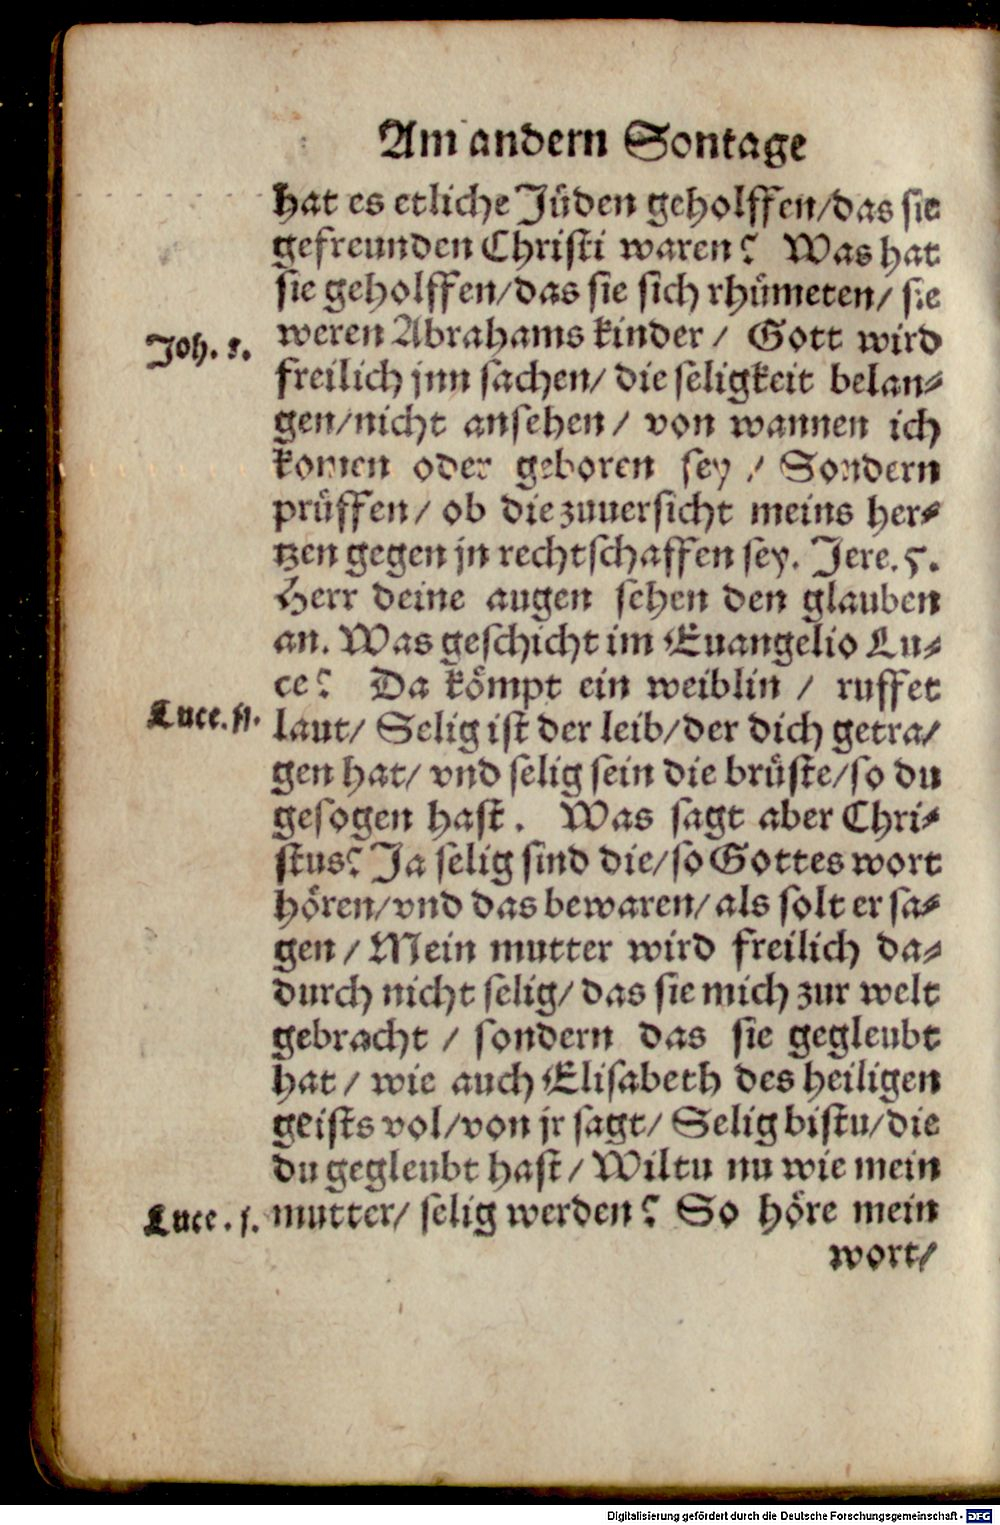 Am andern Sontage
hat es etliche Jüden geholffen/das sie
gefreunden Christi waren? Was hat
sie geholffen/das sie sich rhümeten/ sie
Joh. 8.
weren Abrahams kinder / Gott wird
freilich jnn sachen/ die seligkeit belan-
gen/nicht ansehen / von wannen ich
komen oder geboren sey / Sondern
prüffen/ ob die zuuersicht meins her-
tzen gegen jn rechtschaffen sey. Jere. 5.
Herr deine augen sehen den glauben
an. Was geschicht im Euangelio Lu-
ce? Da kömpt ein weiblin / ruffet
Luce. 11.
laut/ Selig ist der leib/der dich getra/
gen hat/ vnd selig sein die brüste/so du
gesogen hast. Was sagt aber Chri-
stus? Ja selig sind die/so Gottes wort
hören/vnd das bewaren/ als solt er sa-
gen / Mein mutter wird freilich da-
durch nicht selig/ das sie mich zur welt
gebracht / sondern das sie gegleubt
hat / wie auch Elisabeth des heiligen
geists vol/von jr sagt/ Selig bistu/die
du gegleubt hast / Wiltu nu wie mein
Luce. 1.
mutter/ selig werden? So höre mein
wort/
Digitalisierung gefördert durch die Deutsche Forschungsgemeinschaft - DFG